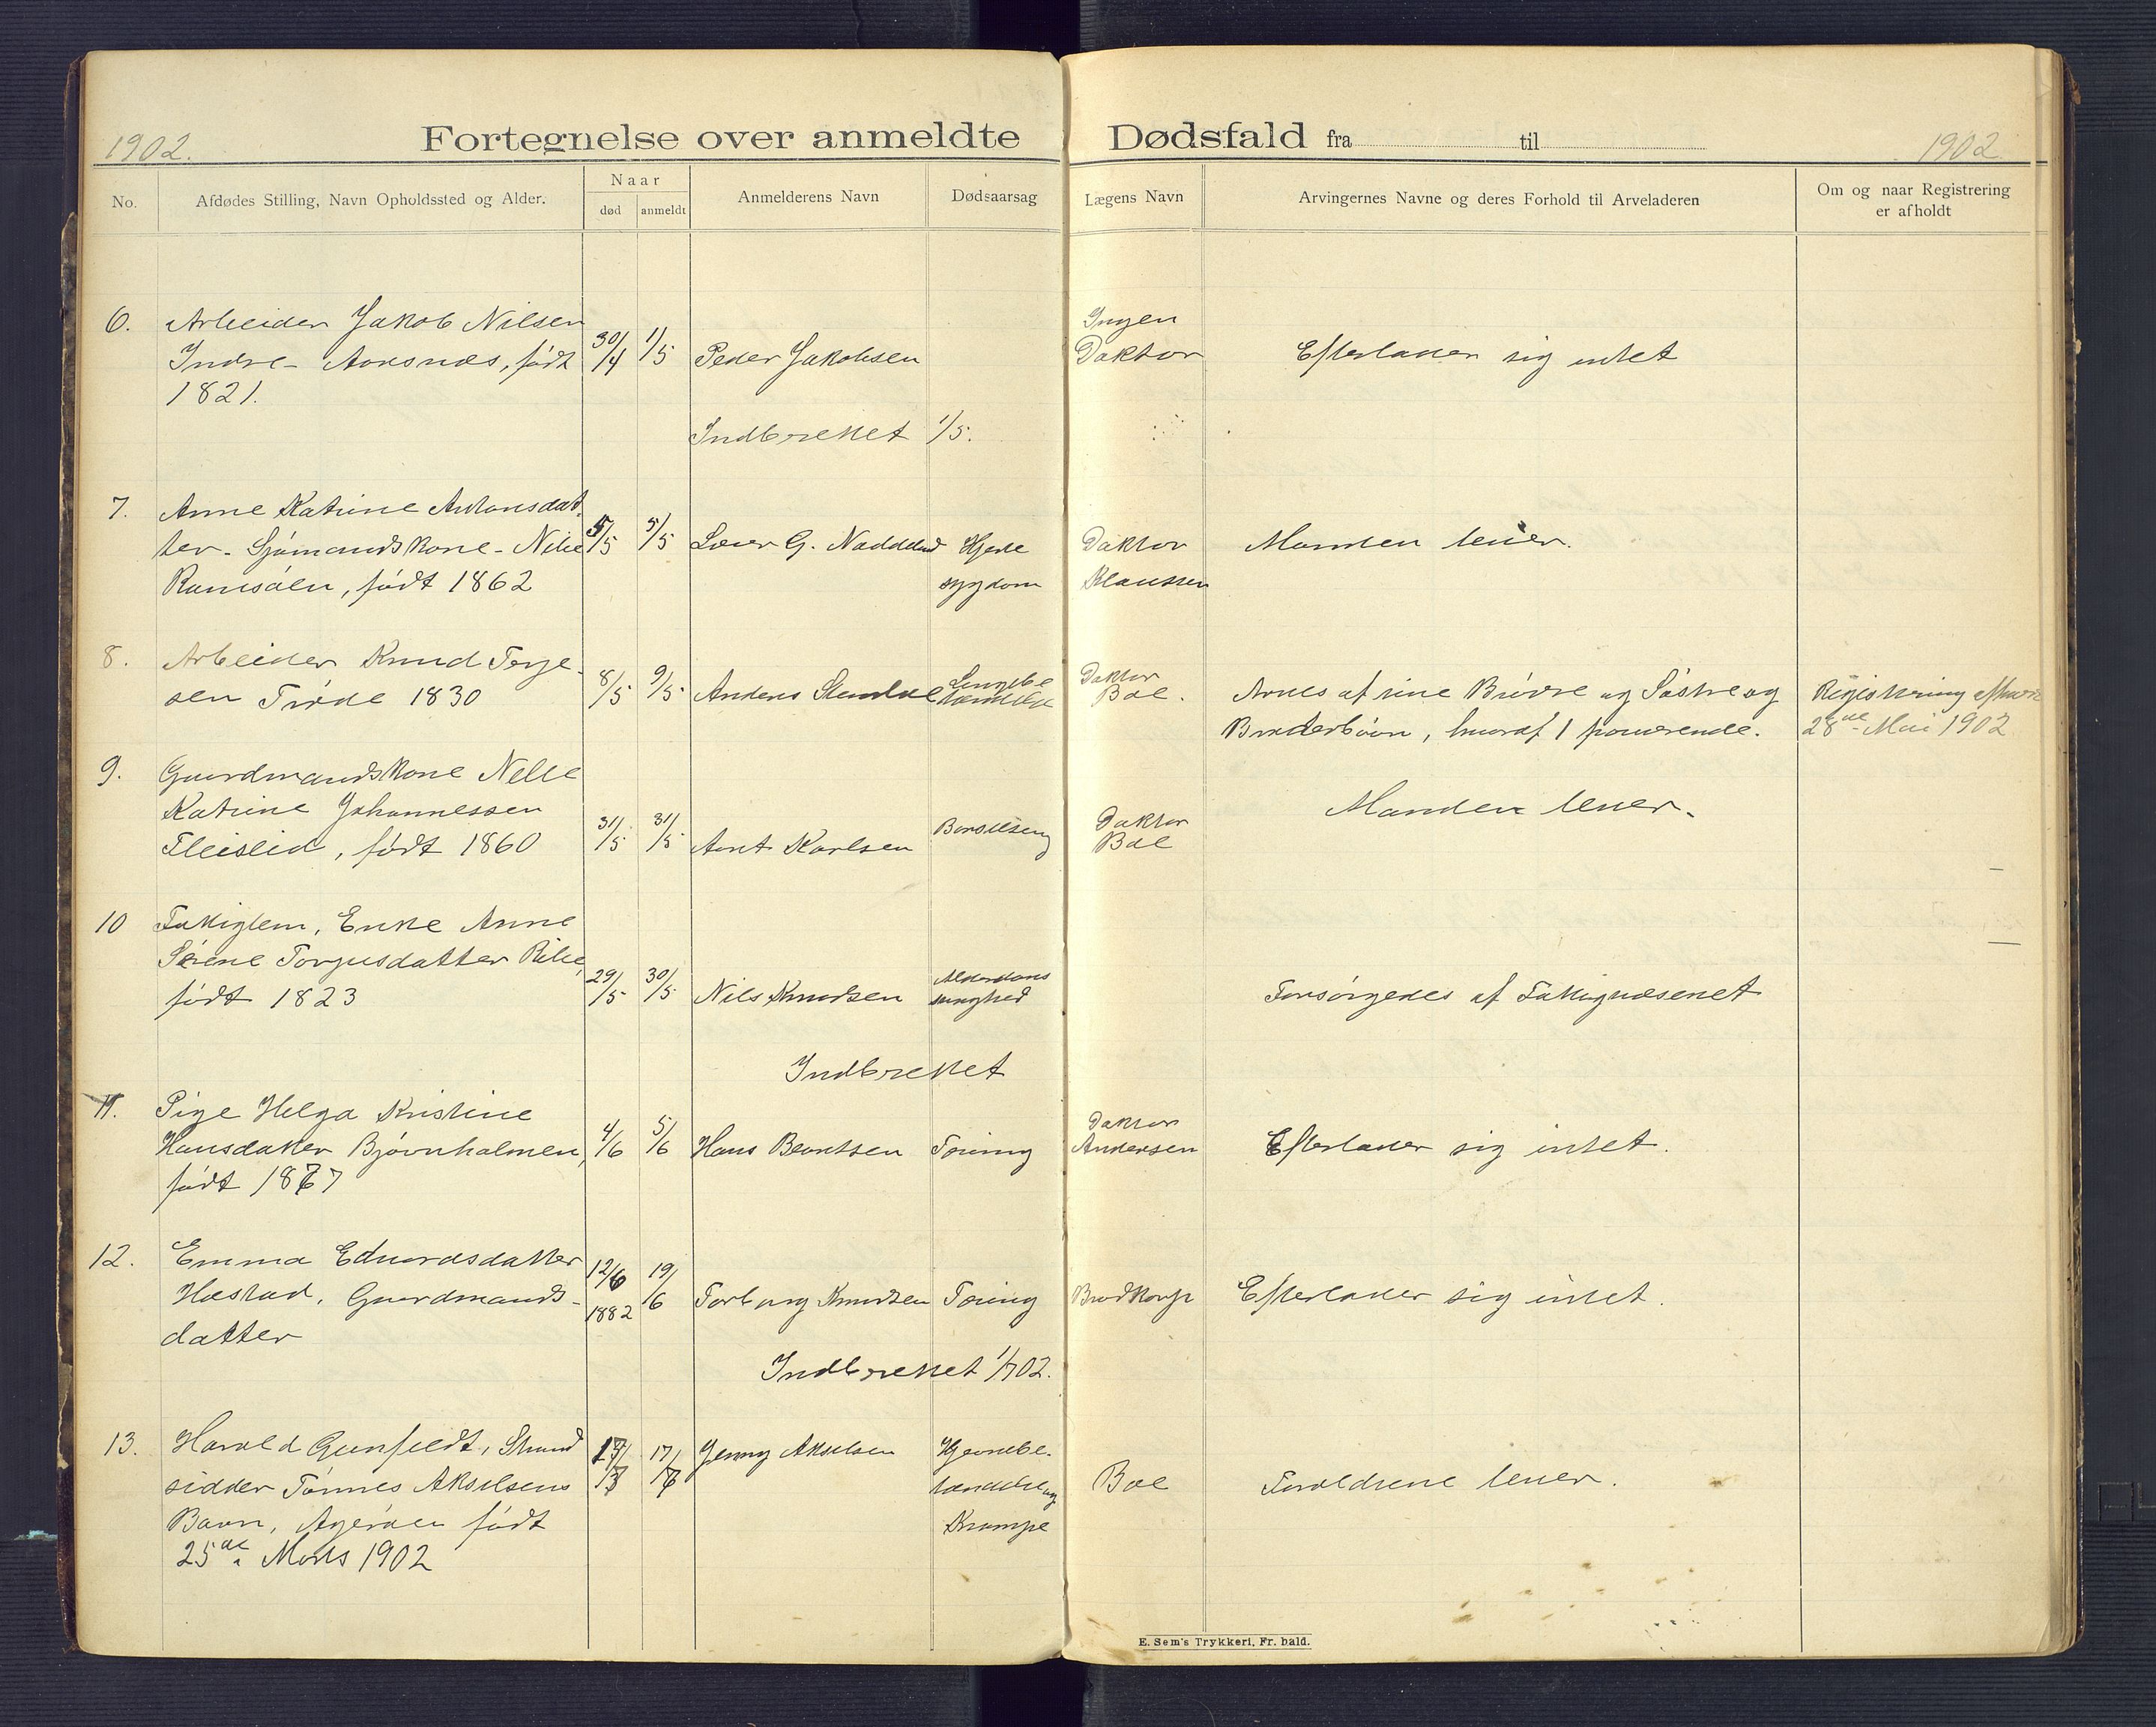 1902.
Fortegnelse over anmeldte Dødsfald fra til
1902
No.
Afdødes Stilling, Navn Opholdssted og Alder.
Naar
død
anmeldt
Anmelderens Navn
Dødsaarsag
Lægens Navn
Arvingernes Navne og deres Forhold til Arveladeren
Om og naar Registrering
er afholdt
6. Arbeider Jakob Nilsen
Indre- Aarsnæs, født
1821.
30/4 1/5 Peder Jakobsen
Ingen
Doktor
Efterlader sig intet
Indberettet 1/5.
7. Anne Katrine Antonsdat-
ter- Sjømandskone-
født 1862
5/5 5/5 G.
Hjerte
sygdom
Doktor
Klaussen
Manden lever.
8. Arbeider Knud Terje-
sen Trøde 1830
8/5 9/5 Anders
Lungebe
tændelse
Doktor
Boe.
Arves af sine Brødre og Søstre og
Broderbørn, hvoraf 1 fraværende.
Registrering
28de Mai 1902
9. Gaardmandskone Nelle
Katrine Johannessen
født 1860
31/5 31/5 Arnt Karlsen
Barselseng
Doktor
Boe
Manden lever.
10 Fattiglem, Enke Anne
Sørene Torjusdatter
født 1823
29/5 30/5 Nils Knudsen
Alderdoms
svaghed
Forsørgedes af Fattigvæsenet
Indberettet
11. Pige Helga Kristine
Hansdatter Bjørnholmen,
født 1867
4/6 5/6 Hans Berntsen Tæring
Doktor
Andersen
Efterlader sig intet.
12. Emma Edvardsdatter
Hæstad, Gaardmands-
datter
12/6
1882
19/6 Torborg Knudsen Tæring Brodkorp Efterlader sig intet.
Indberettet 1/7 02.
13. Harald Gunfeldt, Strand
sidder Tønnes Akselsens
Barn, Agerøen født
25de Marts 1902
17/ 17/ Jenny Akselsen
Hjernebe-
tændelse og
Krampe
Boe
Forældrene lever.
E. Sem's Trykkeri, Fr. hald.